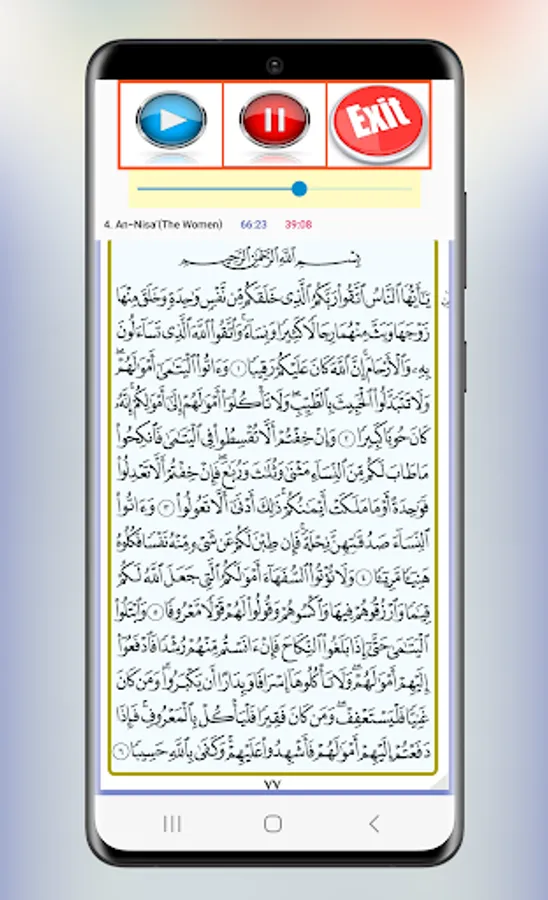 Exit
4. An-Nisa'(The Women) 66:23 39:08
بِسْمِ اللَّهِ الرَّحْمَٰنِ الرَّحِيمِ
يَٰٓأَيُّهَا ٱلنَّاسُ ٱتَّقُوا۟ رَبَّكُمُ ٱلَّذِى خَلَقَكُم مِّن نَّفْسٍ وَٰحِدَةٍ وَخَلَقَ مِنْهَا
زَوْجَهَا وَبَثَّ مِنْهُمَا رِجَالًا كَثِيرًا وَنِسَآءً ۚ وَٱتَّقُوا۟ ٱللَّهَ ٱلَّذِى تَسَآءَلُونَ
بِهِۦ وَٱلْأَرْحَامَ ۚ إِنَّ ٱللَّهَ كَانَ عَلَيْكُمْ رَقِيبًا ١ وَءَاتُوا۟ ٱلْيَتَٰمَىٰٓ أَمْوَٰلَهُمْ ۖ
وَلَا تَتَبَدَّلُوا۟ ٱلْخَبِيثَ بِٱلطَّيِّبِ ۖ وَلَا تَأْكُلُوٓا۟ أَمْوَٰلَهُمْ إِلَىٰٓ أَمْوَٰلِكُمْ ۚ إِنَّهُۥ
كَانَ حُوبًا كَبِيرًا ٢ وَإِنْ خِفْتُمْ أَلَّا تُقْسِطُوا۟ فِى ٱلْيَتَٰمَىٰ فَٱنكِحُوا۟
مَا طَابَ لَكُم مِّنَ ٱلنِّسَآءِ مَثْنَىٰ وَثُلَٰثَ وَرُبَٰعَ ۖ فَإِنْ خِفْتُمْ أَلَّا تَعْدِلُوا۟
فَوَٰحِدَةً أَوْ مَا مَلَكَتْ أَيْمَٰنُكُمْ ۚ ذَٰلِكَ أَدْنَىٰٓ أَلَّا تَعُولُوا۟ ٣ وَءَاتُوا۟
ٱلنِّسَآءَ صَدُقَٰتِهِنَّ نِحْلَةً ۚ فَإِن طِبْنَ لَكُمْ عَن شَىْءٍ مِّنْهُ نَفْسًا فَكُلُوهُ
هَنِيٓـًٔا مَّرِيٓـًٔا ٤ وَلَا تُؤْتُوا۟ ٱلسُّفَهَآءَ أَمْوَٰلَكُمُ ٱلَّتِى جَعَلَ ٱللَّهُ لَكُمْ
قِيَٰمًا وَٱرْزُقُوهُمْ فِيهَا وَٱكْسُوهُمْ وَقُولُوا۟ لَهُمْ قَوْلًا مَّعْرُوفًا ٥ وَٱبْتَلُوا۟
ٱلْيَتَٰمَىٰ حَتَّىٰٓ إِذَا بَلَغُوا۟ ٱلنِّكَاحَ فَإِنْ ءَانَسْتُم مِّنْهُمْ رُشْدًا فَٱدْفَعُوٓا۟
إِلَيْهِمْ أَمْوَٰلَهُمْ ۖ وَلَا تَأْكُلُوهَآ إِسْرَافًا وَبِدَارًا أَن يَكْبَرُوا۟ ۚ وَمَن كَانَ
غَنِيًّا فَلْيَسْتَعْفِفْ ۖ وَمَن كَانَ فَقِيرًا فَلْيَأْكُلْ بِٱلْمَعْرُوفِ ۚ فَإِذَا
دَفَعْتُمْ إِلَيْهِمْ أَمْوَٰلَهُمْ فَأَشْهِدُوا۟ عَلَيْهِمْ ۚ وَكَفَىٰ بِٱللَّهِ حَسِيبًا ٦
٧٧